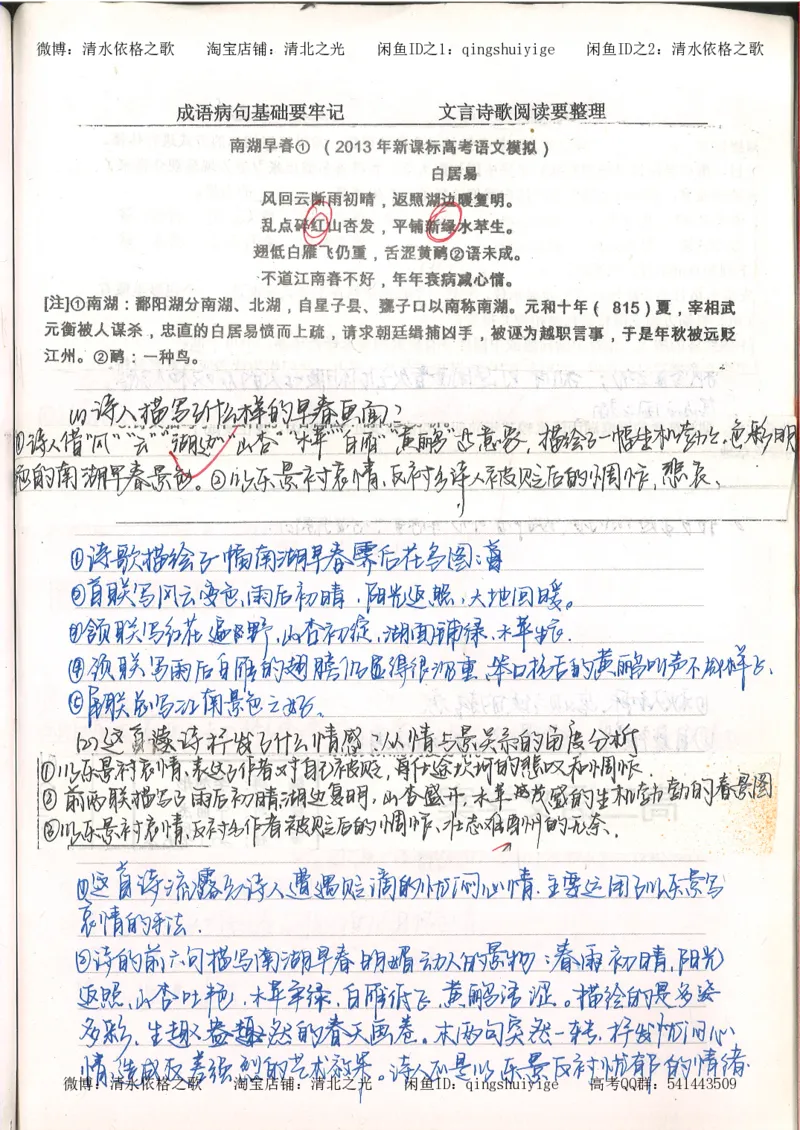 微博：清水依格之歌 淘宝店铺：清北之光 闲鱼ID之1：qingshuiyige 闲鱼ID之2：清水依格之歌
成语病句基础要牢记 文言诗歌阅读要整理
南湖早春①（2013年新课标高考语文模拟）
白居易
风回云断雨初晴，返照湖边暖复明。
乱点碎红山杏发，平铺新绿水苹生。
翅低白雁飞仍重，舌涩黄鹂②语未成。
不道江南春不好，年年衰病减心情。
[注]①南湖：鄱阳湖分南湖、北湖，自星子县、甕子口以南称南湖。元和十年（ 815）夏，宰相武
元衡被人谋杀，忠直的白居易愤而上疏，请求朝廷缉捕凶手，被诬为越职言事，于是年秋被远贬
江州。②鹂：一种鸟。
(1)诗人描写了什么样的早春画面？
①诗人借“风”“云”“湖边”“山杏”“水苹”“白雁”“黄鹂”等意象，描绘了一幅生机勃勃、色彩明
的南湖早春景色。②以乐景衬哀情，反衬出诗人被贬后的惆怅，悲哀、
①诗歌描绘了一幅南湖早春霁后花鸟图：
②首联写风云变色，雨后初晴，阳光返照，大地回暖。
③颔联写红花遍野，山杏初绽，湖面铺绿，水苹
④颈联写雨后白雁的翅膀仍显得很沉重，的黄鹂叫声不
⑤尾联总写江南景色之好。
(2)这首诗抒发了什么情感，从情与景关系的角度分析
①以乐景衬哀情，表达了作者对自己被贬，仕途坎坷的悲叹和惆怅．
②前两联描写了雨后初晴湖边复明，山杏盛开，水草茂盛的生机勃勃的春景图
③以乐景衬哀情，反衬出作者被贬后的惆怅，壮志难酬的无奈．
①这首诗流露出诗人遭遇贬谪的忧闷心情．主要运用了以乐景写
哀情的手法．
②诗的前六句描写南湖早春明媚动人的景物：春雨初晴，阳光
返照，山杏吐艳，水草穿绿，白雁低飞，黄鹂语涩。描绘的是多姿
多彩，生趣盎然的春天画卷。末两句突然一转，抒发忧闷心
情，造成反差强烈的艺术效果。诗人正是以乐景反衬忧郁的情绪
微博：清水依格之歌 淘宝店铺：清北之光 闲鱼ID：qingshuiyige 高考QQ群：541443509